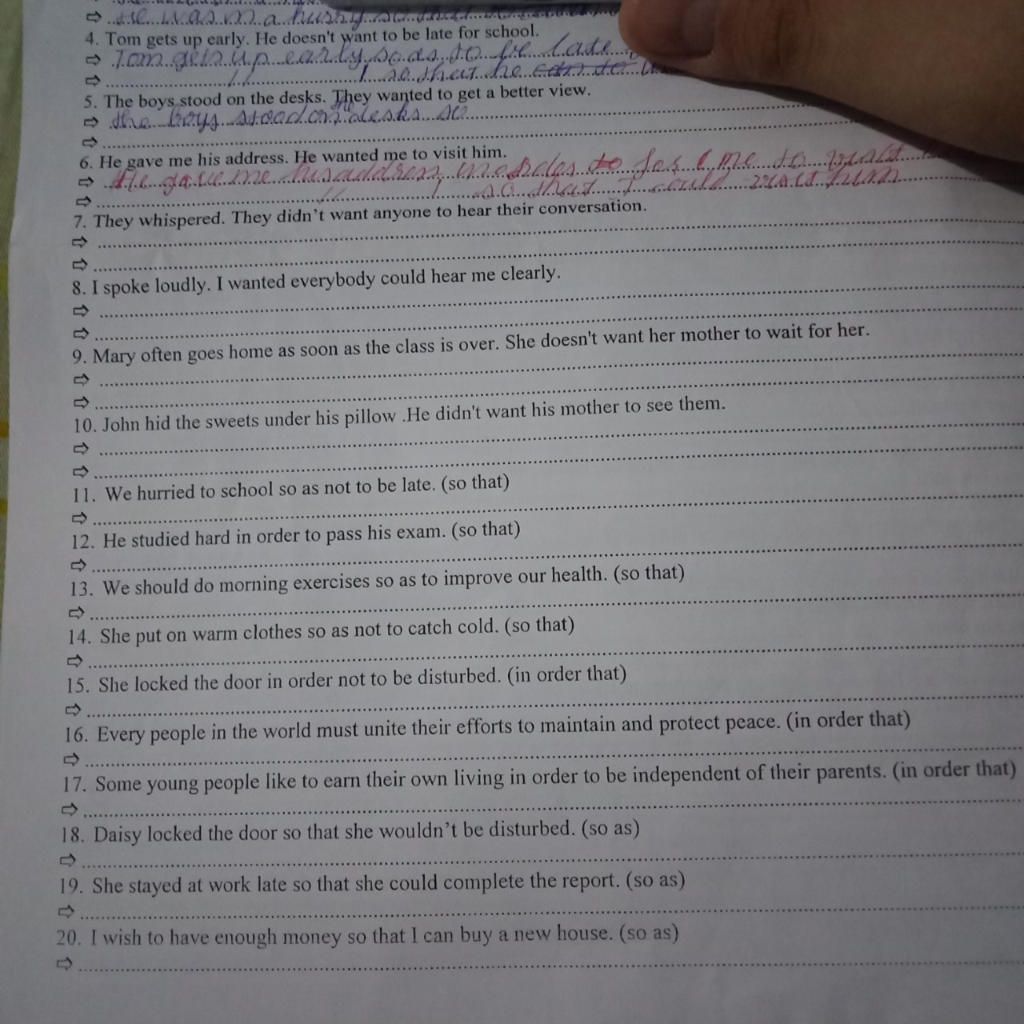 ⇨ He was in a hurry so that
4. Tom gets up early. He doesn't want to be late for school.
⇨ Tom gets up early so as to be late
⇨ " so that he can to
5. The boys stood on the desks. They wanted to get a better view.
⇨ the boys stood on desks so
⇨
6. He gave me his address. He wanted me to visit him.
⇨ He gave me his address, to for me to visit
⇨ " so that I could visit him
7. They whispered. They didn't want anyone to hear their conversation.
⇨
⇨
8. I spoke loudly. I wanted everybody could hear me clearly.
⇨
⇨
9. Mary often goes home as soon as the class is over. She doesn't want her mother to wait for her.
⇨
⇨
10. John hid the sweets under his pillow .He didn't want his mother to see them.
⇨
⇨
11. We hurried to school so as not to be late. (so that)
⇨
12. He studied hard in order to pass his exam. (so that)
⇨
13. We should do morning exercises so as to improve our health. (so that)
⇨
14. She put on warm clothes so as not to catch cold. (so that)
⇨
15. She locked the door in order not to be disturbed. (in order that)
⇨
16. Every people in the world must unite their efforts to maintain and protect peace. (in order that)
⇨
17. Some young people like to earn their own living in order to be independent of their parents. (in order that)
⇨
18. Daisy locked the door so that she wouldn't be disturbed. (so as)
⇨
19. She stayed at work late so that she could complete the report. (so as)
⇨
20. I wish to have enough money so that I can buy a new house. (so as)
⇨